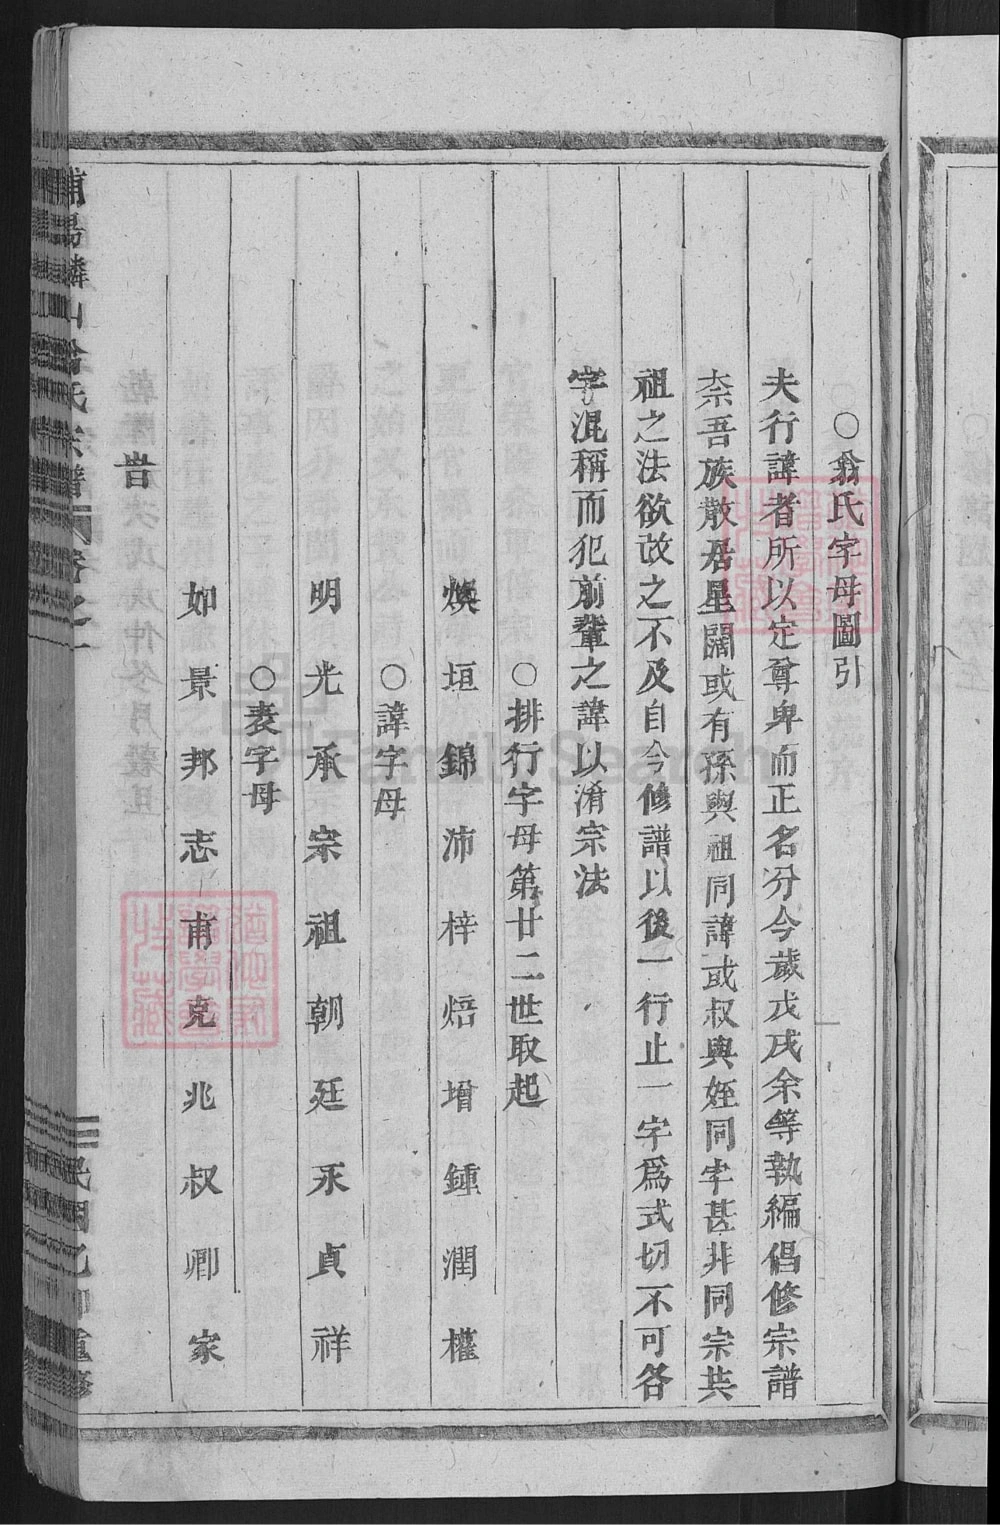 ○翁氏字母圖引
夫行諱者所以定尊卑而正名分今歲戊戌余等執編倡修宗譜
柰吾族散居星闊或有孫與祖同諱或叔與姪同字甚非同宗共
祖之法欲改之不及自今修譜以後一行止一字爲式切不可各
字混稱而犯前輩之諱以淆宗法
○排行字母第廿二世取起
煥垣錦沛梓焙增鍾潤權
○諱字母
明光承宗祖朝廷永貞祥
○表字母
如景邦志甫克兆叔卿家
昔
浦陽 山翁氏宗譜 卷之一 民國乙卯重修
FamilySearch